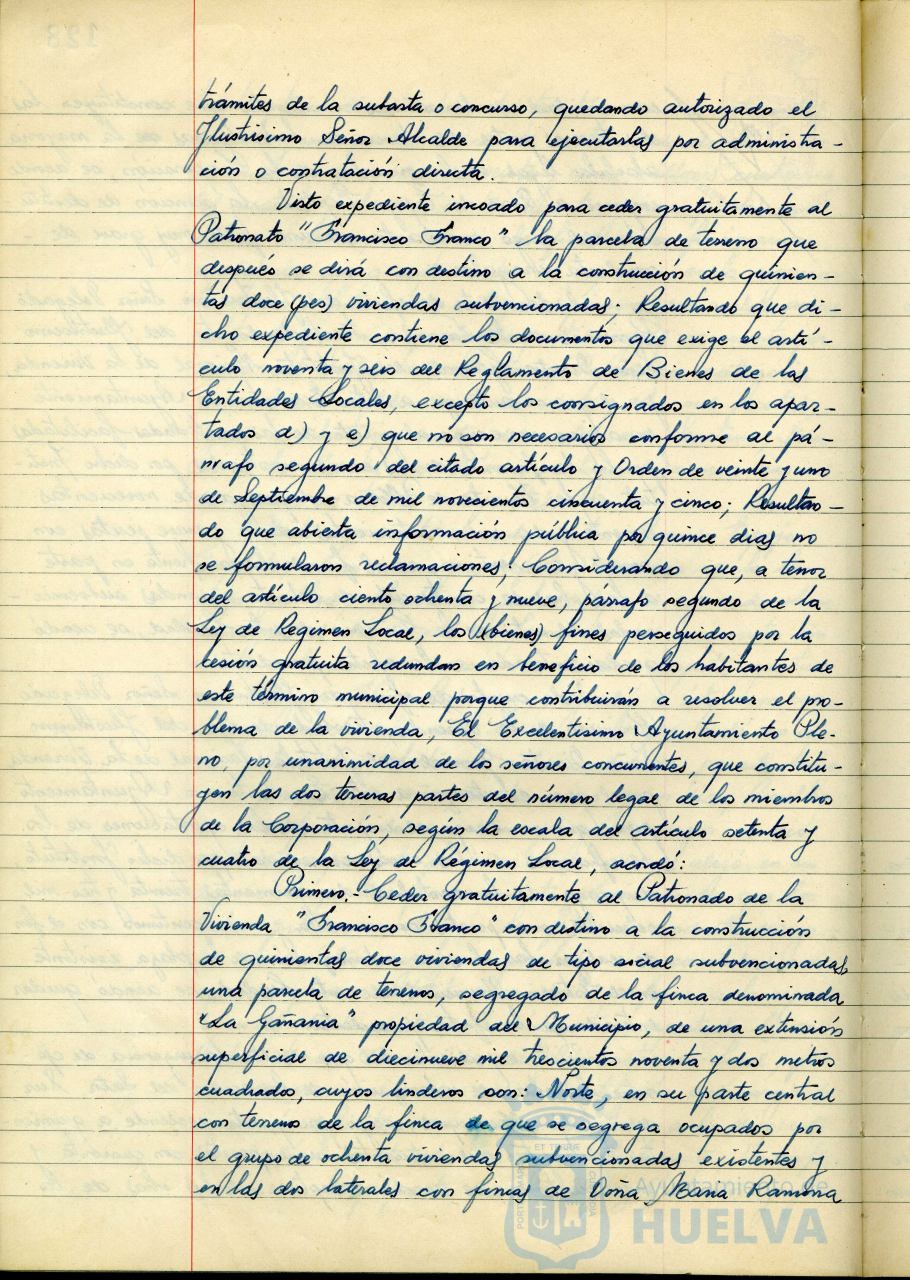 trámites de la subasta o concurso, quedando autorizado el
Ilustrisimo Señor Alcalde para ejecutarlas por administra-
ción o contratación directa.
Visto expediente incoado para ceder gratuitamente al
Patronato "Francisco Franco" la parcela de terreno que
después se dirá con destino a la construcción de quinien-
tas doce (pes) viviendas subvencionadas; Resultando que di-
cho expediente contiene los documentos que exige el artí-
culo noventa y seis del Reglamento de Bienes de las
Entidades Locales, excepto los consignados en los apar-
tados d) y e) que no son necesarios conforme al pá-
rrafo segundo del citado artículo y Orden de veinte y uno
de Septiembre de mil novecientos cincuenta y cinco; Resultan-
do que abierta información pública por quince dias no
se formularon reclamaciones; Considerando que, a tenor
del artículo ciento ochenta y nueve, párrafo segundo de la
Ley de Regimen Local, los (bienes) fines perseguidos por la
cesión gratuita redundan en beneficio de los habitantes de
este término municipal porque contribuirán a resolver el pro-
blema de la vivienda, El Excelentisimo Ayuntamiento Ple-
no, por unanimidad de los señores concurrentes, que constitu-
yen las dos terceras partes del número legal de los miembros
de la Corporación, según la escala del artículo setenta y
cuatro de la Ley de Régimen Local, acordó:
Primero.- Ceder gratuitamente al Patronado de la
Vivienda "Francisco Franco" con destino a la construcción
de quinientas doce viviendas de tipo sicial subvencionadas,
una parcela de terrenos, segregado de la finca denominada
"La Gañania" propiedad del Municipio, de una extensión
superficial de diecinueve mil trescientos noventa y dos metros
cuadrados, cuyos linderos son: Norte, en su parte central
con terrenos de la finca de que se segrega ocupados por
el grupo de ochenta viviendas subvencionadas existentes y
en las dos laterales con fincas de Doña Maria Ramona
Ayuntamiento de
HUELVA